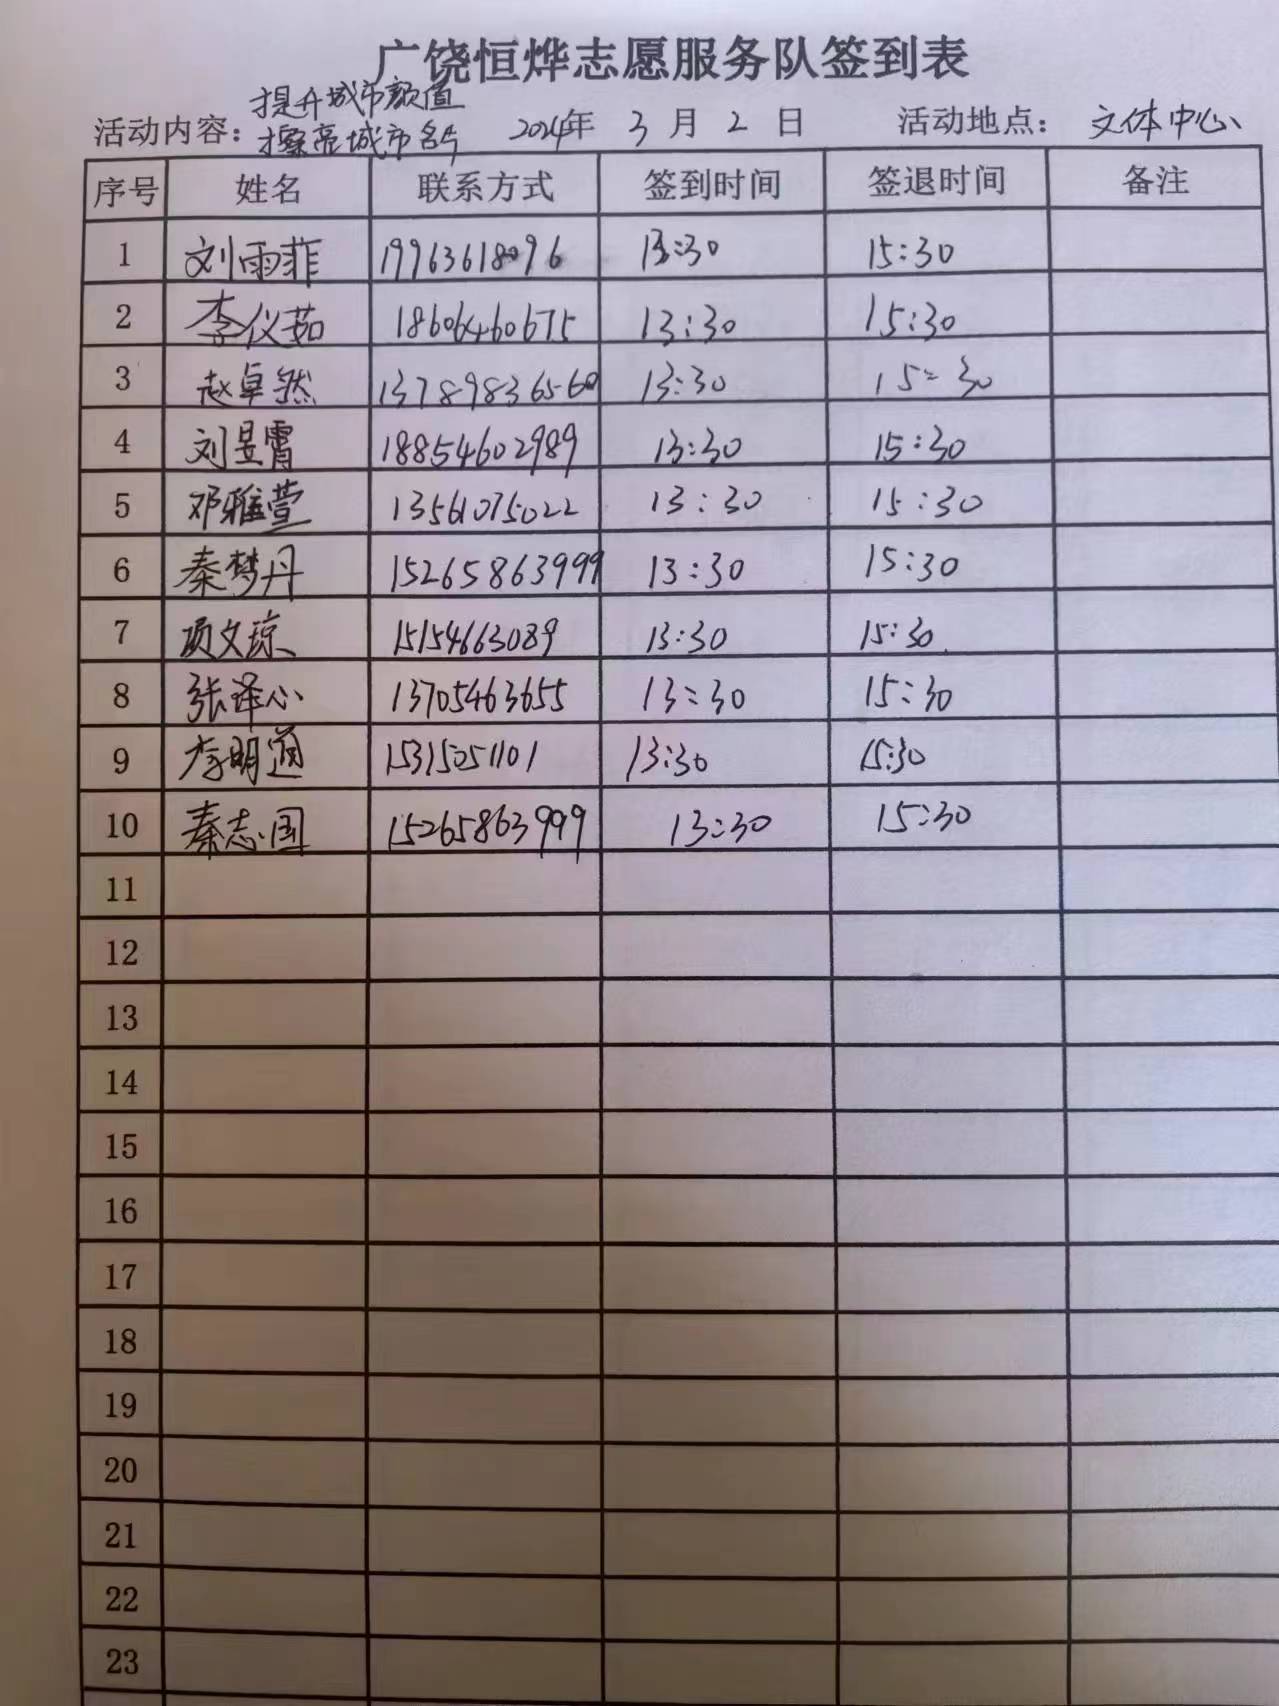 广饶恒烨志愿服务队签到表
提升城市颜值
活动内容：擦亮城市名片 2024年 3 月 2 日 活动地点：文体中心
序号 姓名 联系方式 签到时间 签退时间 备注
1 刘雨菲 19963618096 13:30 15:30
2 李仪茹 18606460675 13:30 15:30
3 赵卓然 13789836560 13:30 15:30
4 刘昱霄 18854602989 13:30 15:30
5 邓雅萱 13561075022 13:30 15:30
6 秦梦丹 15265863999 13:30 15:30
7 项文琼 15154663089 13:30 15:30
8 张译心 13705463655 13:30 15:30
9 李明通 15315251101 13:30 15:30
10 秦志国 15265863999 13:30 15:30
11
12
13
14
15
16
17
18
19
20
21
22
23